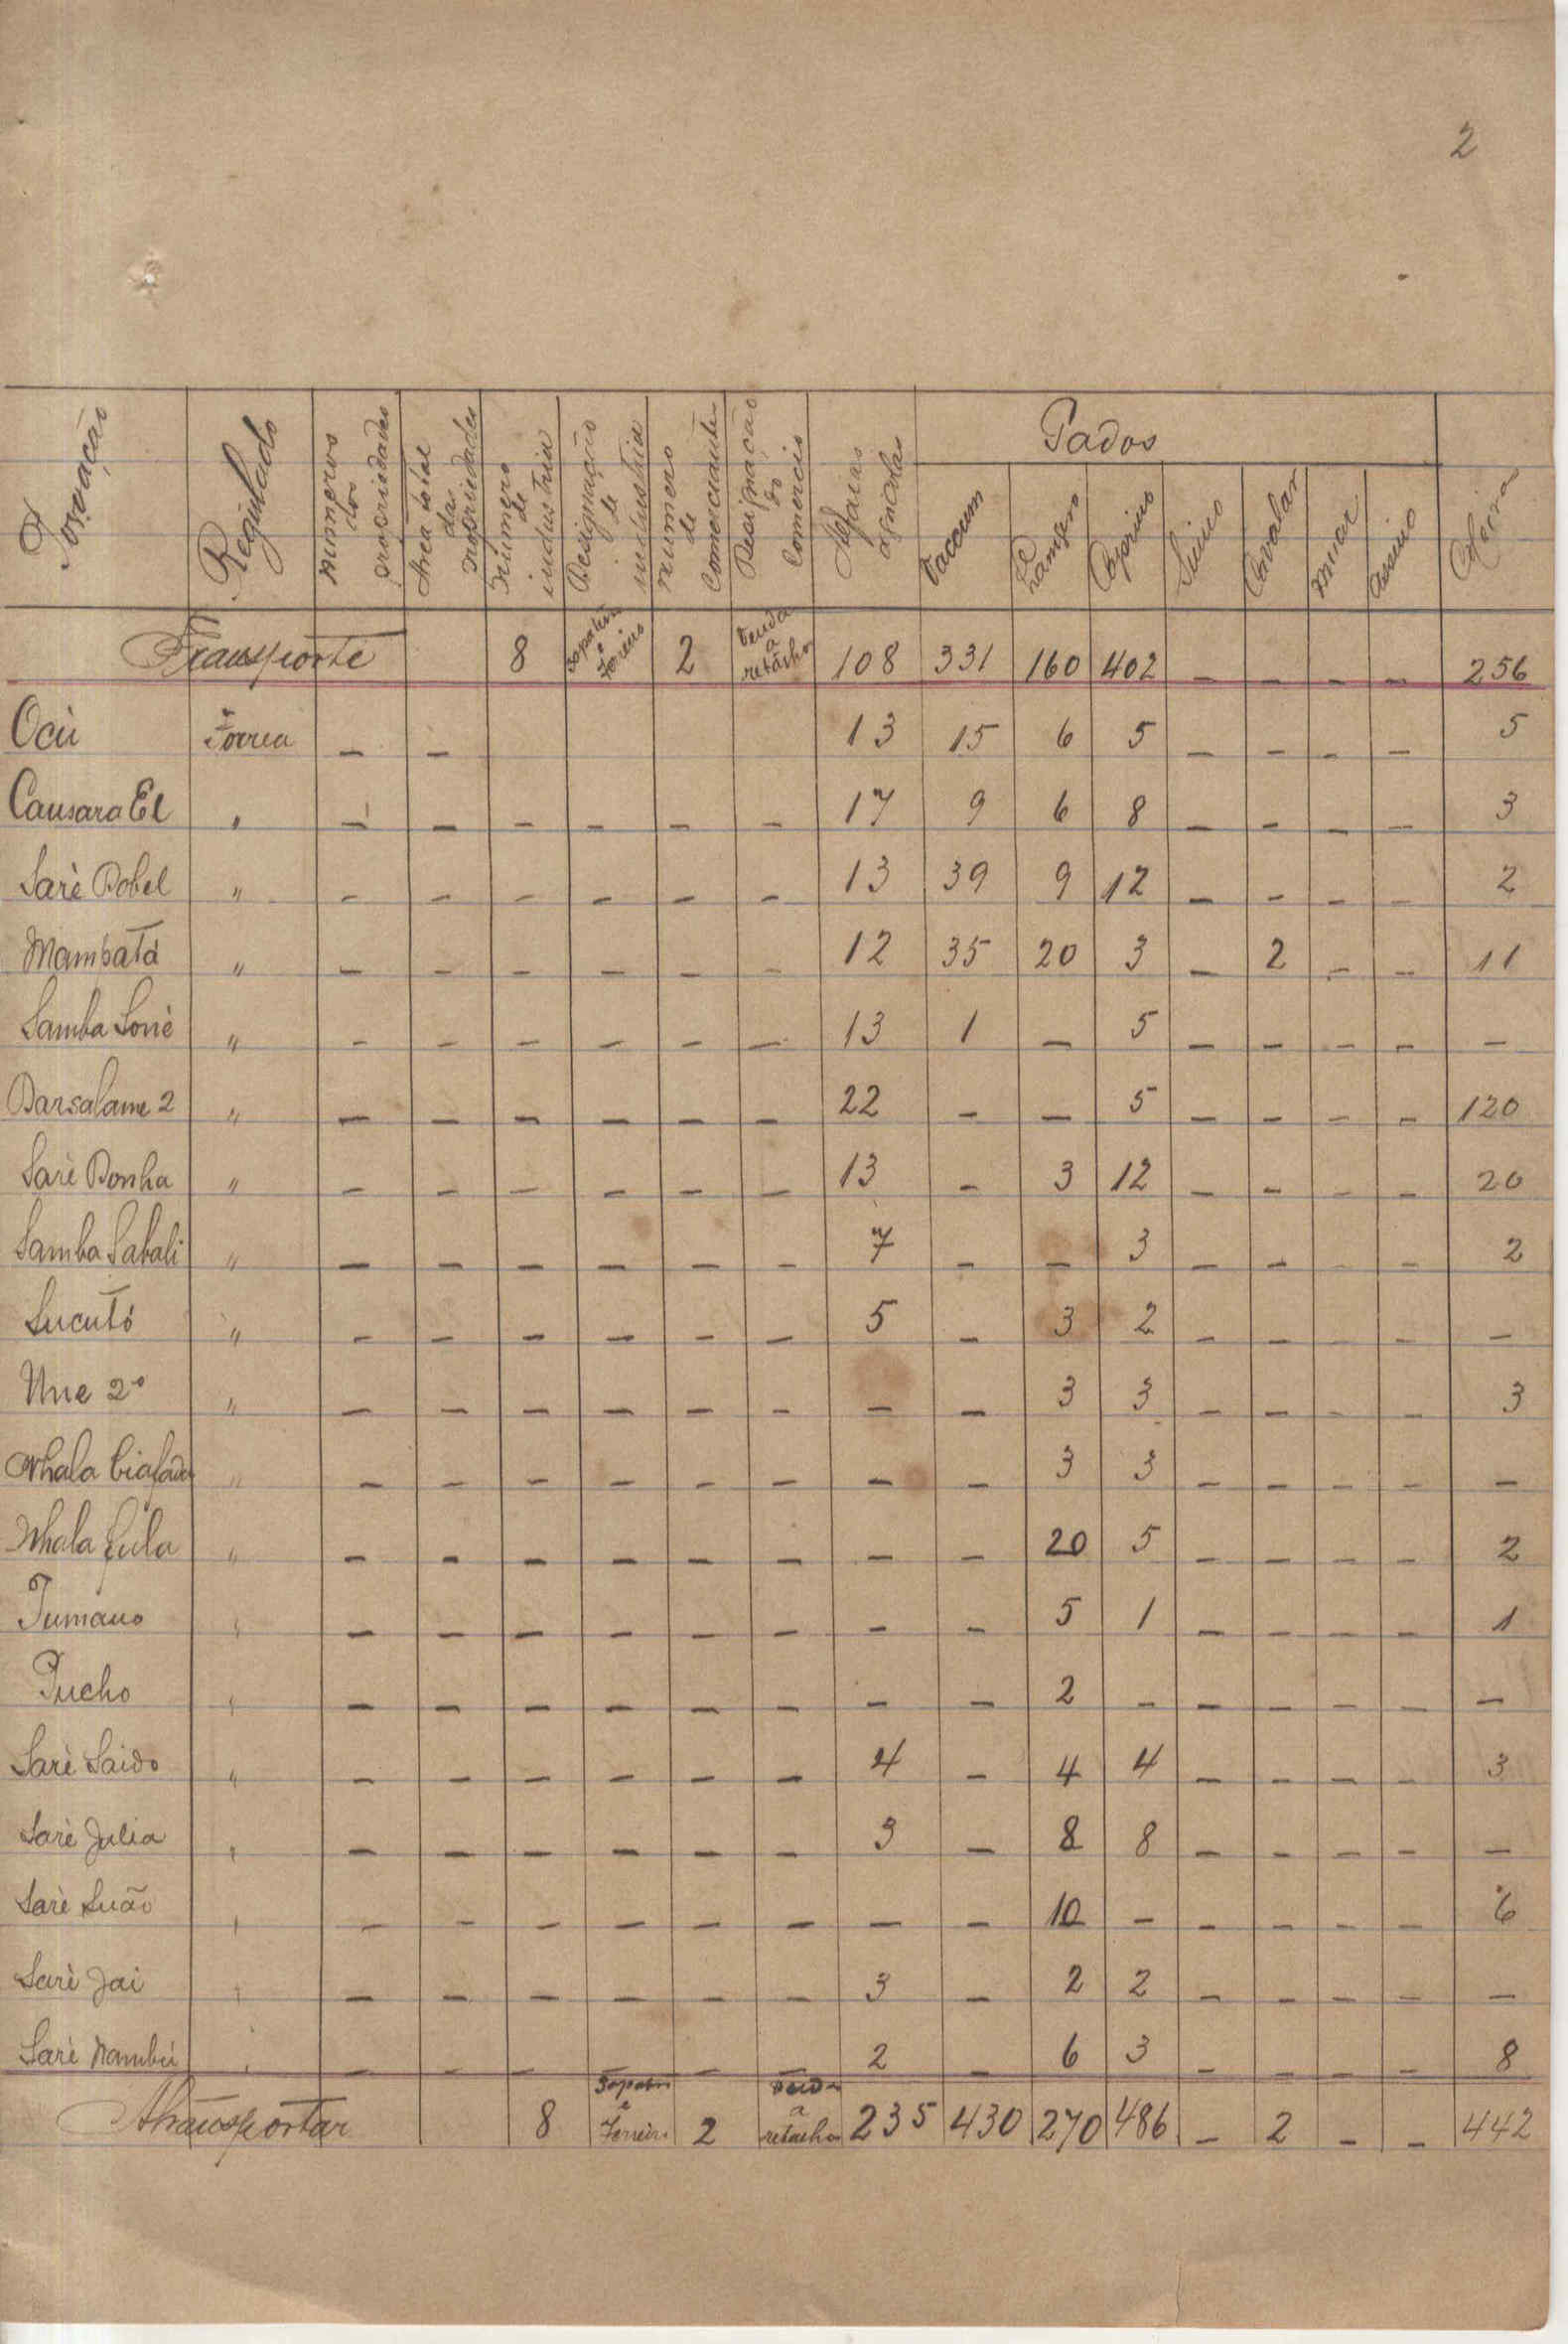 2
Povoação Regulado Números dos propriedades Área total das propriedades Número de industria Designação de industria Numero de Comerciante Designação do Comercio Alfaias agricolas Gados
Vaccum Lanigero Caprino Suino Cavalar Muar Asinino
Transporte 8 Sapateiro e Ferreiro 2 Venda a retalho 108 331 160 402 — — — — 256
Ocù Forrea — — 13 15 6 5 — — — — 5
Causara El " — — — — — — 17 9 6 8 — — — — 3
Sarè Dobel " — — — — — — 13 39 9 12 — — — — 2
Mambatá " — — — — — — 12 35 20 3 — 2 — — 11
Samba Sonè " — — — — — — 13 1 — 5 — — — — —
Darsalame 2 " — — — — — — 22 — — 5 — — — — 120
Sarè Donha " — — — — — — 13 — 3 12 — — — — 20
Samba Sabali " — — — — — — 7 — — 3 — — — — 2
Sucutó " — — — — — — 5 — 3 2 — — — — —
Une 2º " — — — — — — — — 3 3 — — — — 3
Nhala biafada " — — — — — — — — 3 3 — — — — —
Nhala fula " — — — — — — — — 20 5 — — — — 2
Tumano " — — — — — — — — 5 1 — — — — 1
Pucho " — — — — — — — — 2 — — — — — —
Sarè Saido " — — — — — — 4 — 4 4 — — — — 3
Sarè Julia " — — — — — — 3 — 8 8 — — — — —
Sarè Suão " — — — — — — — — 10 — — — — — 6
Sarè Jai " — — — — — — 3 — 2 2 — — — — —
Sarè Nambú " — — — — — — 2 — 6 3 — — — — 8
A transportar 8 Sapateiro e Ferreiro 2 Venda a retalho 235 430 270 486 — 2 — — 442